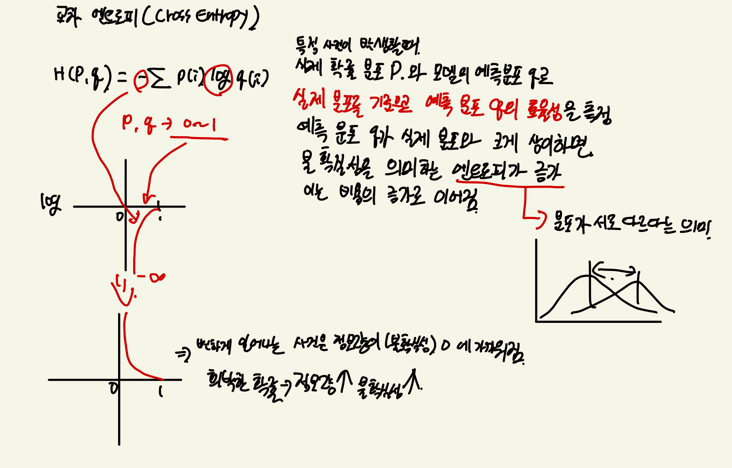 교차 엔트로피 (Cross Entropy)
H(P,q) = -∑ P(i) log q(i)
P, q → 0~1
log
0
1
-∞
0
1
특정 사건이 발생할때,
실제 확률 분포 P.와 모델의 예측분포 q로
실제 분포를 기준으로 예측 분포 q의 효율성을 측정
예측 분포 q가 실제 분포와 크게 상이하면,
불확실성을 의미하는 엔트로피가 증가
이는 비용의 증가로 이어짐.
분포가 서로 다르다는 의미!
⇒ 번하게 일어나는 사건은 정보량이(불확실성) 0에 가까워짐.
희박한 확률→ 정보량↑ 불확실성↑